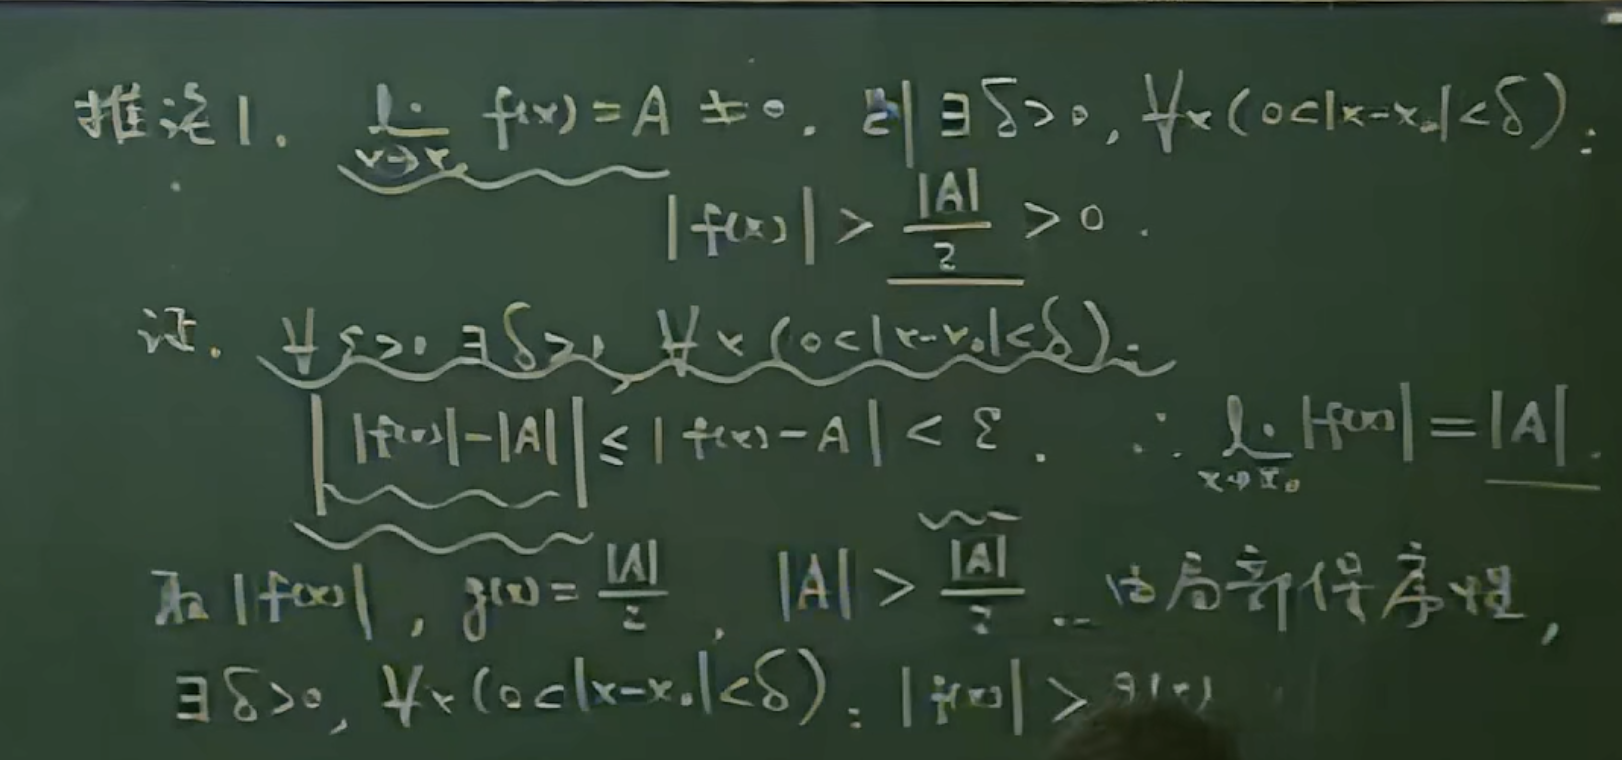 推论1. lim x→x₀ f(x)=A≠0. 则∃δ>0, ∀x(0<|x-x₀|<δ):
|f(x)| > |A|/2 > 0.
证. ∀ε>0 ∃δ>0, ∀x(0<|x-x₀|<δ):
||f(x)|-|A|| ≤ |f(x)-A| < ε. ∴ lim x→x₀ |f(x)|=|A|.
取|f(x)|, g(x)=|A|/2, |A| > |A|/2 … 由局部保序性,
∃δ>0, ∀x(0<|x-x₀|<δ): |f(x)| > g(x)